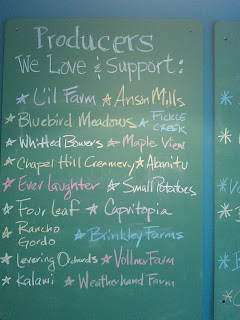 Producers
We Love & Support:
Lil Farm ★ Anson Mills
★ Bluebird Meadows ★ FICKLE CREEK
★ Whitted Bowers ★ Maple View
★ Chapel Hill Creamery ★ Abanitu
★ Ever Laughter ★ Small Potatoes
★ Four Leaf ★ Capritopia
★ Rancho Gordo ★ Brinkley Farms
★ Levering Orchards ★ Vollmer Farm
★ Kalawi ★ Weatherhand Farm